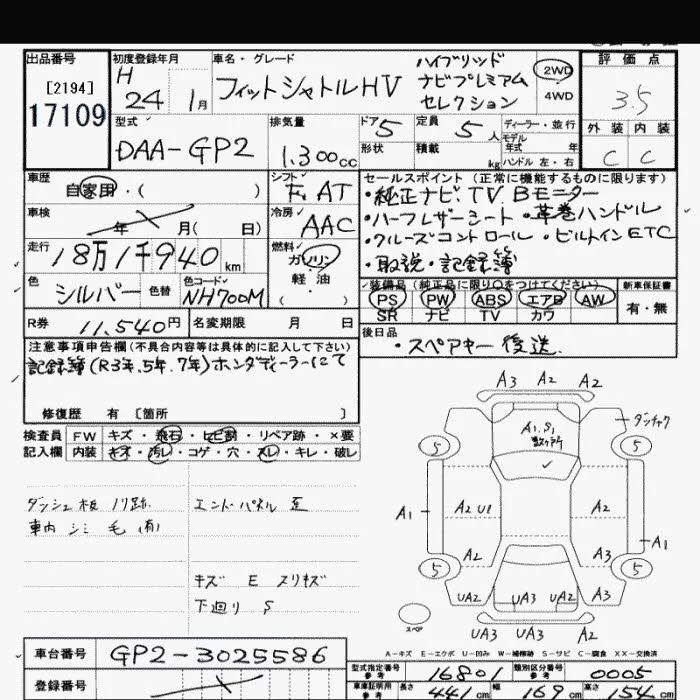 出品番号
[2194]
17109
初度登録年月
H
24 1月
車名・グレード
フィットシャトルHV
ハイブリッド
ナビプレミアム
セレクション
2WD
4WD
評価点
3.5
外装 内装
C C
型式
DAA-GP2
排気量
1.300cc
ドア 5
定員 5人
ディーラー・並行
モデル
年式 年
形状
積載 kg
ハンドル 左・右
車歴
自家用・( )
シフト
F. AT
車検
年 月( 日)
冷房
AAC
走行
18万1千940km
燃料
ガソリン
軽油
( )
色
シルバー
色替
色コード
NH700M
R券 11,540円
名変期限 月 日
セールスポイント(正常に機能するものに限ります)
・純正ナビ.TV.Bモニター
・ハーフレザーシート ・革巻ハンドル
・クルーズコントロール ・ビルトインETC
・取説・記録簿
装備品(純正品に限り○をつけてください)
新車保証書
PS PW ABS エアB AW
SR ナビ TV カワ
有・無
後日品
・スペアキー 後送.
注意事項申告欄(不具合内容等は具体的に記入して下さい)
記録簿(R3年.5年.7年)ホンダディーラーにて
修復歴 有 [箇所 ]
検査員 FW キズ・飛石・ヒビ割・リペア跡・×要
記入欄 内装 キズ・汚レ・コゲ・穴・スレ・キレ・破レ
ダッシュ板 ノリ跡
車内 シミ 毛(有)
エンドパネル 歪
キズ E スリキズ
下廻り S
A3 A2 A2
A1.S1
数ヶ所
5 5
A1 A2 U1 A2
A1
A2 A3
5 5
UA2 UA3 UA2 A3
スペア
UA3 UA3 A2
A-キズ E-エクボ U-凹み W-補修跡 S-サビ C-腐食 XX-交換済
車台番号 GP2-3025586
登録番号
型式指定番号
参考
16801
類別区分番号
参考
0005
車庫証明用
参考
長さ 441cm 幅 169cm 高さ 154cm